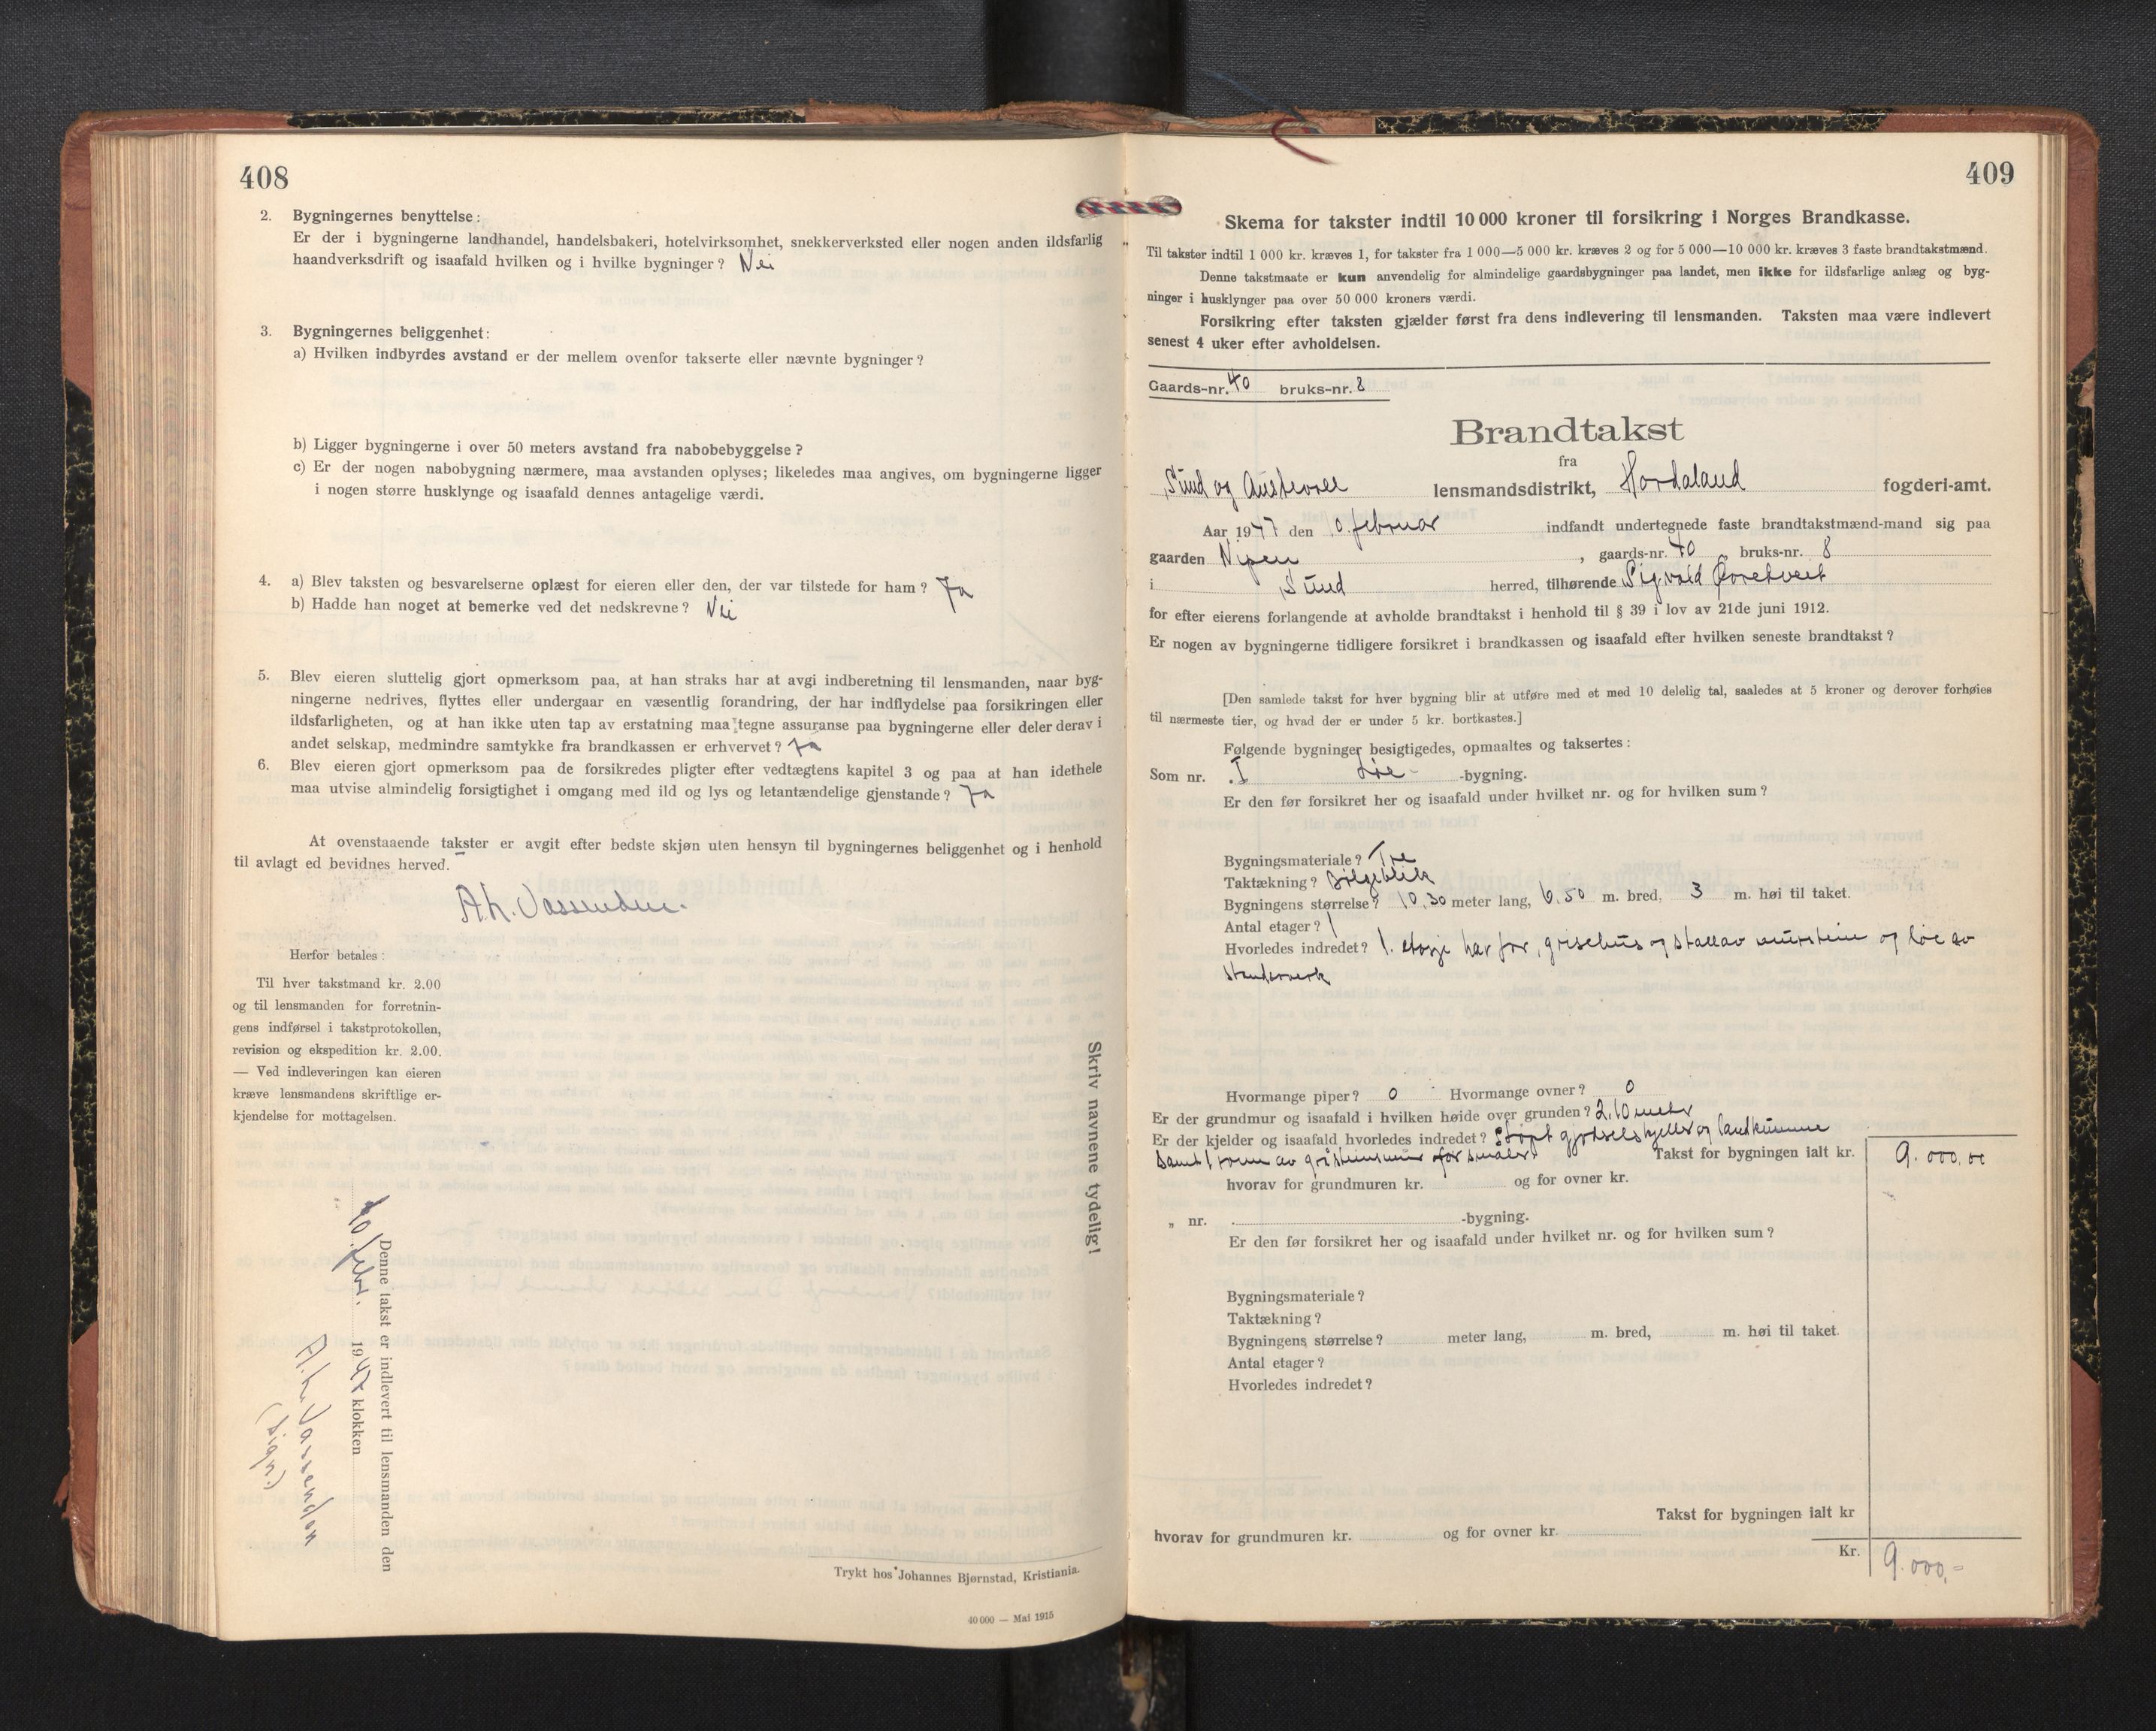 408
2. Bygningernes benyttelse:
Er der i bygningerne landhandel, handelsbakeri, hotelvirksomhet, snekkerverksted eller nogen anden ildsfarlig
haandverksdrift og isaafald hvilken og i hvilke bygninger? Nei
3. Bygningernes beliggenhet:
a) Hvilken indbyrdes avstand er der mellem ovenfor takserte eller nævnte bygninger?
b) Ligger bygningerne i over 50 meters avstand fra nabobebyggelse?
c) Er der nogen nabobygning nærmere, maa avstanden oplyses; likeledes maa angives, om bygningerne ligger
i nogen større husklynge og isaafald dennes antagelige værdi.
4. a) Blev taksten og besvarelserne oplæst for eieren eller den, der var tilstede for ham? Ja
b) Hadde han noget at bemerke ved det nedskrevne? Nei
5. Blev eieren sluttelig gjort opmerksom paa, at han straks har at avgi indberetning til lensmanden, naar byg-
ningerne nedrives, flyttes eller undergaar en væsentlig forandring, der har indflydelse paa forsikringen eller
ildsfarligheten, og at han ikke uten tap av erstatning maa tegne assuranse paa bygningerne eller deler derav i
andet selskap, medmindre samtykke fra brandkassen er erhvervet? Ja
6. Blev eieren gjort opmerksom paa de forsikredes pligter efter vedtægtens kapitel 3 og paa at han idethele
maa utvise almindelig forsigtighet i omgang med ild og lys og letantændelige gjenstande? Ja
At ovenstaaende takster er avgit efter bedste skjøn uten hensyn til bygningernes beliggenhet og i henhold
til avlagt ed bevidnes herved.
A.L. Vassenden.
Herfor betales:
Til hver takstmand kr. 2.00
og til lensmanden for forretnin-
gens indførsel i takstprotokollen,
revision og ekspedition kr. 2.00.
— Ved indleveringen kan eieren
kræve lensmandens skriftlige er-
kjendelse for mottagelsen.
Skriv navnene tydelig!
Denne takst er indlevert til lensmanden den
10. febr. 1947 klokken
A.L. Vassenden
(sign.)
Trykt hos Johannes Bjørnstad, Kristiania.
40 000 — Mai 1915
409
Skema for takster indtil 10 000 kroner til forsikring i Norges Brandkasse.
Til takster indtil 1 000 kr. kræves 1, for takster fra 1 000—5 000 kr. kræves 2 og for 5 000—10 000 kr. kræves 3 faste brandtakstmænd.
Denne takstmaate er kun anvendelig for almindelige gaardsbygninger paa landet, men ikke for ildsfarlige anlæg og byg-
ninger i husklynger paa over 50 000 kroners værdi.
Forsikring efter taksten gjælder først fra dens indlevering til lensmanden. Taksten maa være indlevert
senest 4 uker efter avholdelsen.
Gaards-nr. 40 bruks-nr. 8
Brandtakst
fra
Sund og Austevoll lensmandsdistrikt, Hordaland fogderi-amt.
Aar 1947 den 10. februar indfandt undertegnede faste brandtakstmænd-mand sig paa
gaarden Nipen, gaards-nr. 40 bruks-nr. 8
i Sund herred, tilhørende Sigvald
for efter eierens forlangende at avholde brandtakst i henhold til § 39 i lov av 21de juni 1912.
Er nogen av bygningerne tidligere forsikret i brandkassen og isaafald efter hvilken seneste brandtakst?
[Den samlede takst for hver bygning blir at utføre med et med 10 delelig tal, saaledes at 5 kroner og derover forhøies
til nærmeste tier, og hvad der er under 5 kr. bortkastes.]
Følgende bygninger besigtigedes, opmaaltes og taksertes:
Som nr. I Løe -bygning.
Er den før forsikret her og isaafald under hvilket nr. og for hvilken sum?
Bygningsmateriale? Tre
Taktækning? Bølgeblikk
Bygningens størrelse? 10,30 meter lang, 6,50 m. bred, 3 m. høi til taket.
Antal etager? 1
Hvorledes indredet? 1. etasje har for, grisehus og stall av murstein og løe av
standerverk
Hvormange piper? 0 Hvormange ovner? 0
Er der grundmur og isaafald i hvilken høide over grunden? 2,10 meter
Er der kjelder og isaafald hvorledes indredet? Støpt gjødselskjeller og landkumme
samt 1 rom av gråsteinsmur for småler. Takst for bygningen ialt kr. 9.000,00
hvorav for grundmuren kr. og for ovner kr.
„ nr. -bygning.
Er den før forsikret her og isaafald under hvilket nr. og for hvilken sum?
Bygningsmateriale?
Taktækning?
Bygningens størrelse? meter lang, m. bred, m. høi til taket.
Antal etager?
Hvorledes indredet?
Takst for bygningen ialt kr
hvorav for grundmuren kr. og for ovner kr.
Kr. 9.000,-